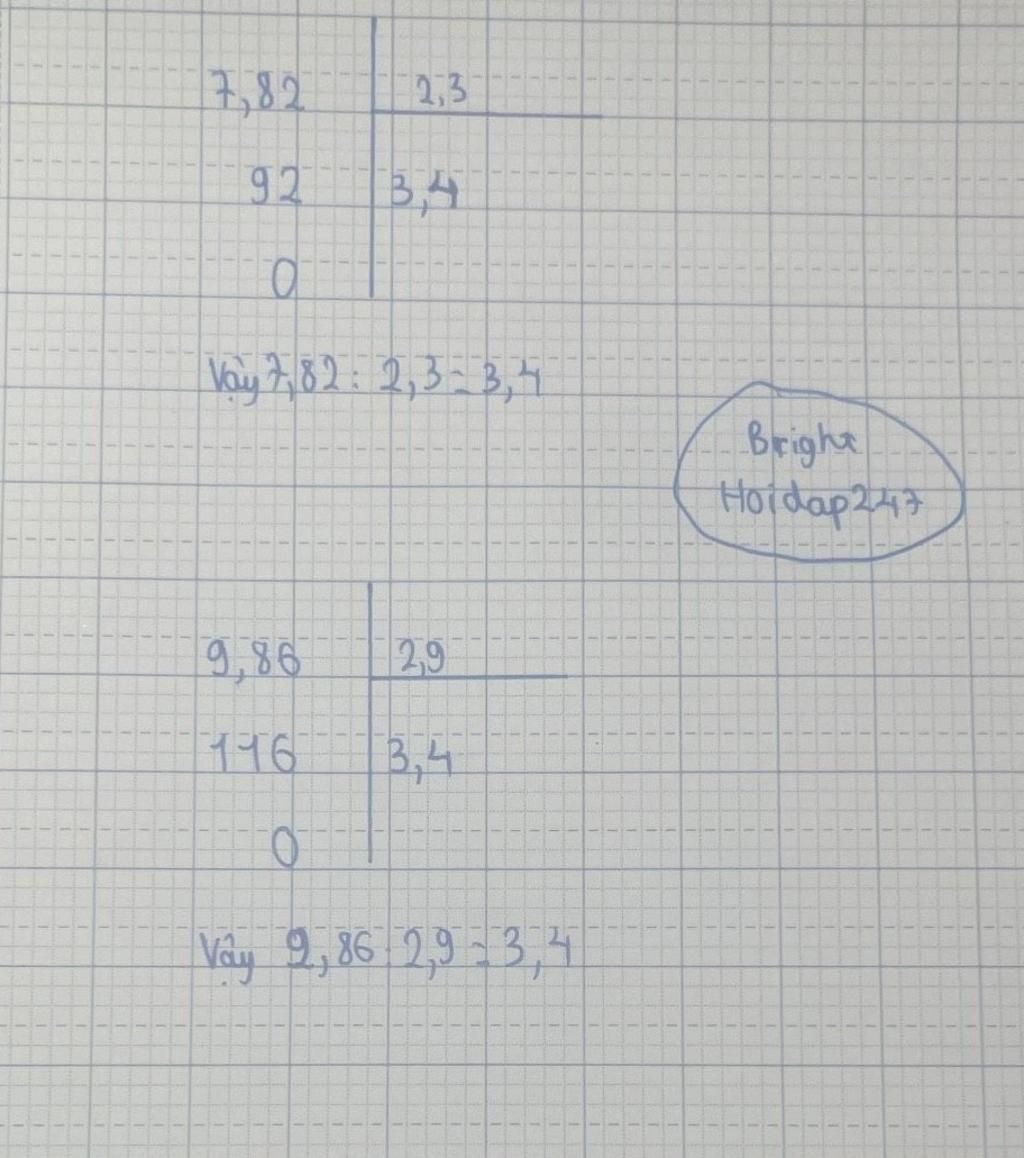 7,82 2,3
92 3,4
0
Vậy 7,82 : 2,3 = 3,4
Bright
Hoidap247
9,86 2,9
116 3,4
0
Vậy 9,86 : 2,9 = 3,4